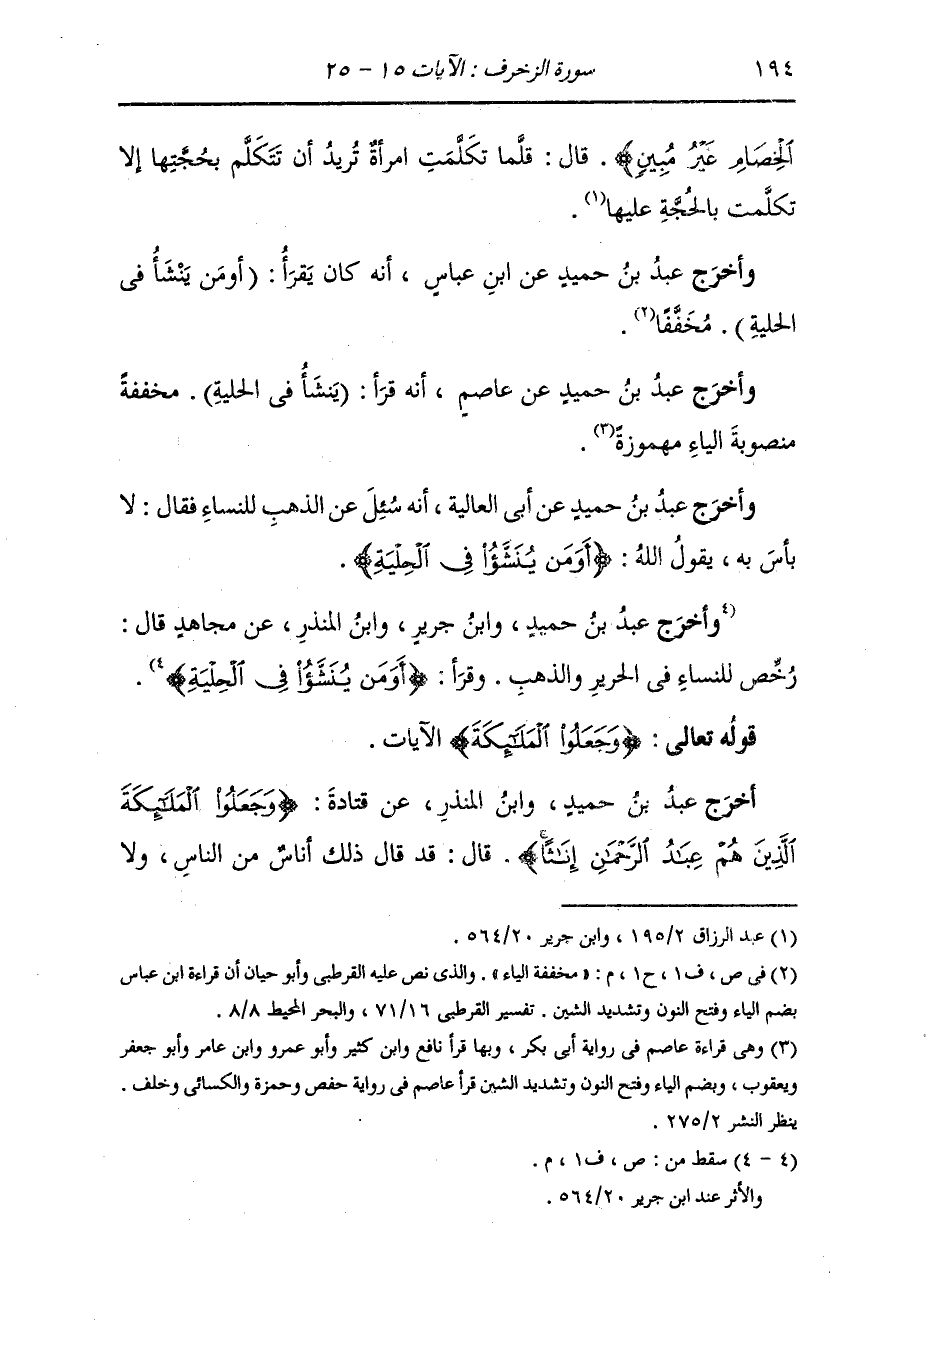 ١٩٤ سورة الزخرف : الآيات ١٥ - ٢٥
ٱلْخِصَامِ غَيْرُ مُبِينٍ﴾ . قال : قلَّما تكلَّمَتِ امرأةٌ تُريدُ أن تتَكَلَّم بحُجَّتِها إلا
تكلَّمت بالحُجَّةِ عليها(١) .
وأخرَج عبدُ بنُ حميدٍ عن ابنِ عباسٍ ، أنه كان يَقرَأُ : (أومَن يَنْشَأُ فى
الحليةِ) . مُخَفَّفًا(٢) .
وأخرَج عبدُ بنُ حميدٍ عن عاصمٍ ، أنه قرَأ : (يَنشَأُ فى الحليةِ) . مخففةً
منصوبةَ الياءِ مهموزةً(٣) .
وأخرَج عبدُ بنُ حميدٍ عن أبى العالية ، أنه سُئِلَ عن الذهبِ للنساءِ فقال : لا
بأسَ به ، يقولُ اللهُ : ﴿أَوَمَن يُنَشَّؤُا۟ فِى ٱلْحِلْيَةِ﴾ .
(٤وأخرَج عبدُ بنُ حميدٍ ، وابنُ جريرٍ ، وابنُ المنذرِ ، عن مجاهدٍ قال :
رُخِّص للنساءِ فى الحريرِ والذهبِ . وقرَأ : ﴿أَوَمَن يُنَشَّؤُا۟ فِى ٱلْحِلْيَةِ﴾٤) .
قولُه تعالى : ﴿وَجَعَلُوا۟ ٱلْمَلَـٰٓئِكَةَ﴾ الآيات .
أخرَج عبدُ بنُ حميدٍ ، وابنُ المنذرِ ، عن قتادةَ : ﴿وَجَعَلُوا۟ ٱلْمَلَـٰٓئِكَةَ
ٱلَّذِينَ هُمْ عِبَـٰدُ ٱلرَّحْمَـٰنِ إِنَـٰثًا ۚ﴾ . قال : قد قال ذلك أناسٌ من الناسِ ، ولا
(١) عبد الرزاق ١٩٥/٢ ، وابن جرير ٥٦٤/٢٠ .
(٢) فى ص ، ف١ ، ح١ ، م : « مخففة الياء » . والذى نص عليه القرطبى وأبو حيان أن قراءة ابن عباس
بضم الياء وفتح النون وتشديد الشين . تفسير القرطبى ٧١/١٦ ، والبحر المحيط ٨/٨ .
(٣) وهى قراءة عاصم فى رواية أبى بكر ، وبها قرأ نافع وابن كثير وأبو عمرو وابن عامر وأبو جعفر
ويعقوب ، وبضم الياء وفتح النون وتشديد الشين قرأ عاصم فى رواية حفص وحمزة والكسائى وخلف .
ينظر النشر ٢٧٥/٢ .
(٤ - ٤) سقط من : ص ، ف١ ، م .
والأثر عند ابن جرير ٥٦٤/٢٠ .